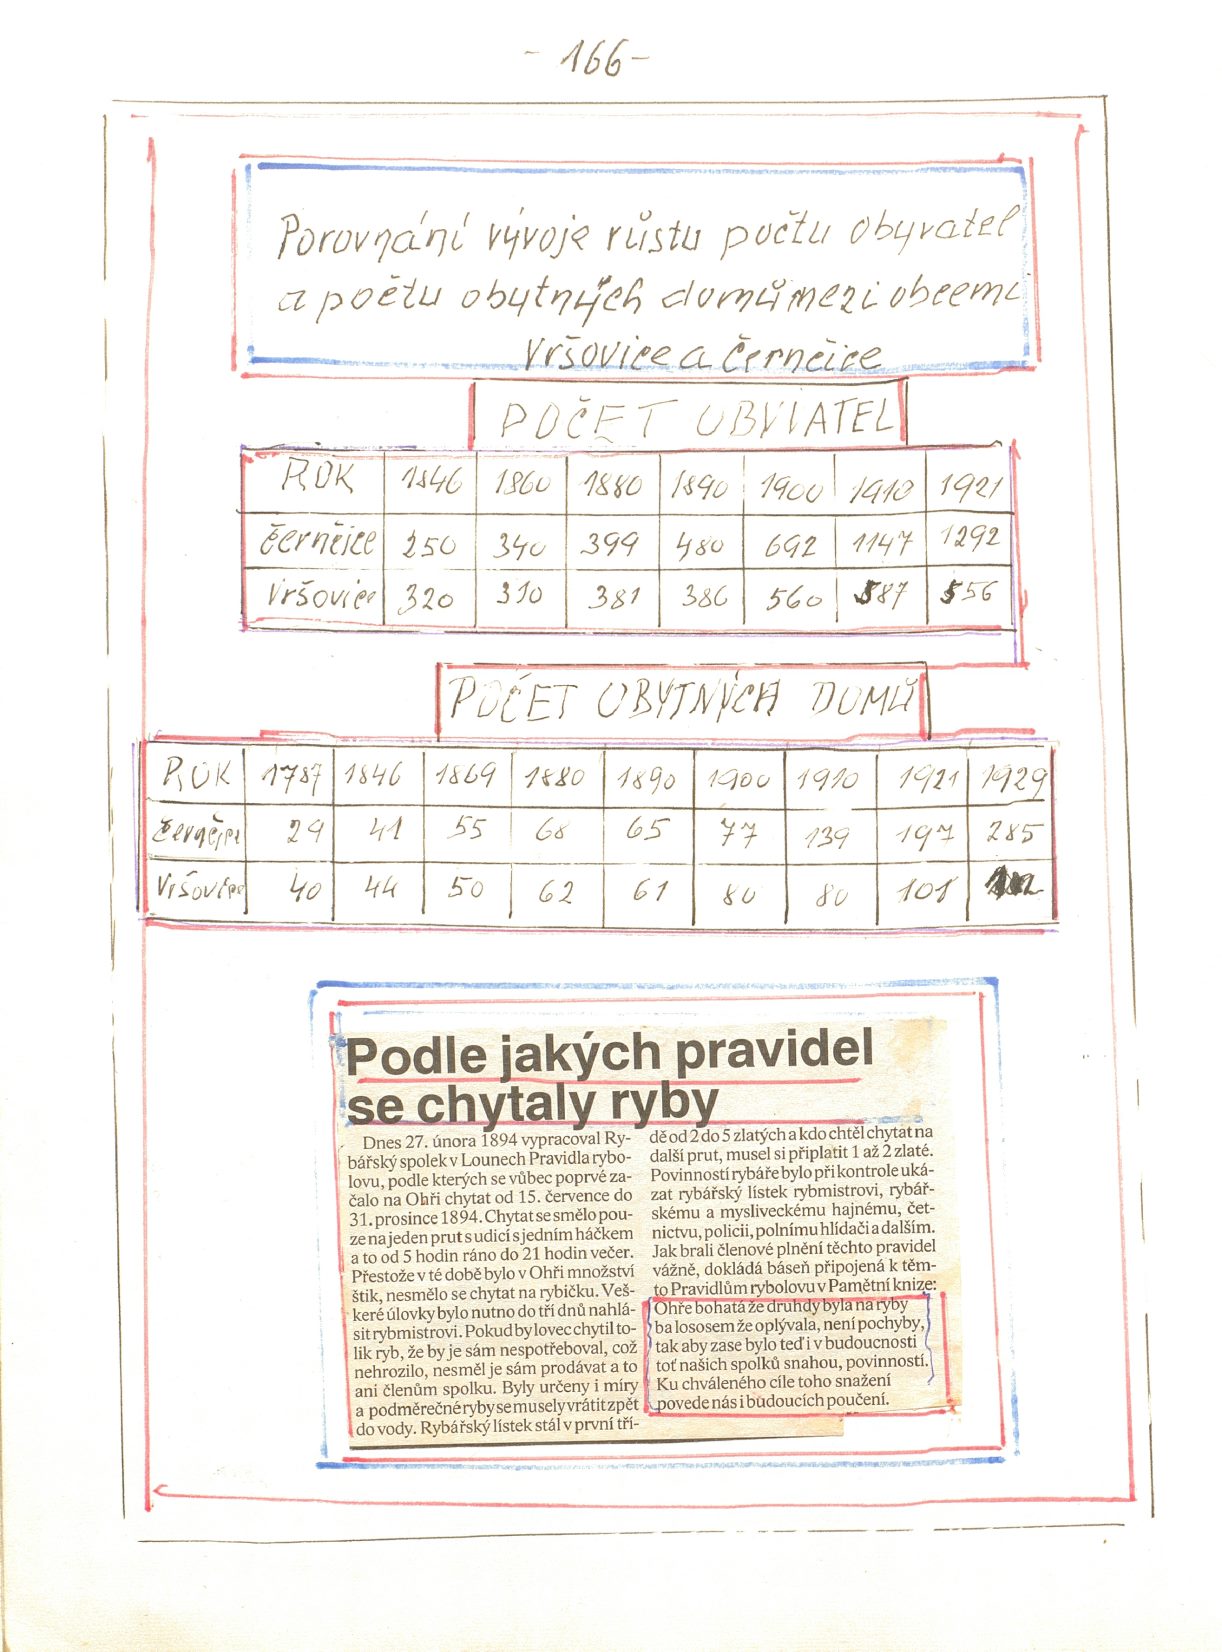 - 166 -
Porovnání vývoje růstu počtu obyvatel
a počtu obytných domů mezi obcemi
Vršovice a Černčice
POČET OBYVATEL
ROK 1846 1860 1880 1890 1900 1910 1921
Černčice 250 340 399 480 692 1147 1292
Vršovice 320 310 381 386 560 587 556
POČET OBYTNÝCH DOMŮ
ROK 1787 1846 1869 1880 1890 1900 1910 1921 1929
Černčice 29 41 55 68 65 77 139 197 285
Vršovice 40 44 50 62 61 80 80 101
Podle jakých pravidel
se chytaly ryby
Dnes 27. února 1894 vypracoval Ry-
bářský spolek v Lounech Pravidla rybo-
lovu, podle kterých se vůbec poprvé za-
čalo na Ohři chytat od 15. července do
31. prosince 1894. Chytat se smělo pou-
ze na jeden prut s udicí s jedním háčkem
a to od 5 hodin ráno do 21 hodin večer.
Přestože v té době bylo v Ohři množství
štik, nesmělo se chytat na rybičku. Veš-
keré úlovky bylo nutno do tří dnů nahlá-
sit rybmistrovi. Pokud by lovec chytil to-
lik ryb, že by je sám nespotřeboval, což
nehrozilo, nesměl je sám prodávat a to
ani členům spolku. Byly určeny i míry
a podměrečné ryby se musely vrátit zpět
do vody. Rybářský lístek stál v první tří-
dě od 2 do 5 zlatých a kdo chtěl chytat na
další prut, musel si připlatit 1 až 2 zlaté.
Povinností rybáře bylo při kontrole uká-
zat rybářský lístek rybmistrovi, rybář-
skému a mysliveckému hajnému, čet-
nictvu, policii, polnímu hlídači a dalším.
Jak brali členové plnění těchto pravidel
vážně, dokládá báseň připojená k těm-
to Pravidlům rybolovu v Pamětní knize:
Ohře bohatá že druhdy byla na ryby
ba lososem že oplývala, není pochyby,
tak aby zase bylo teď i v budoucnosti
toť našich spolků snahou, povinností.
Ku chváleného cíle toho snažení
povede nás i budoucích poučení.